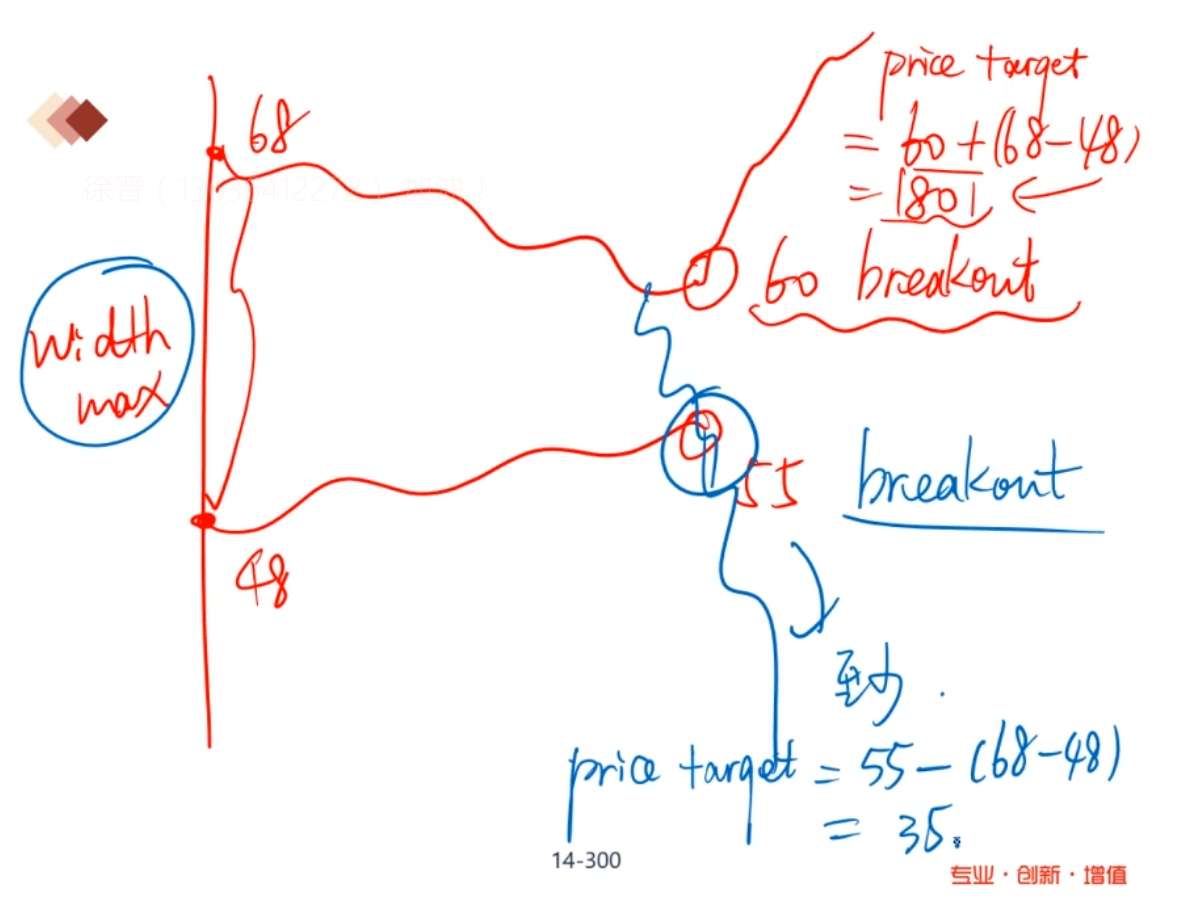 price target
= 60+(68-48)
= |80|
68
60 breakout
width
max
55
breakout
48
至少.
price target = 55-(68-48)
= 35.
14-300
专业·创新·增值